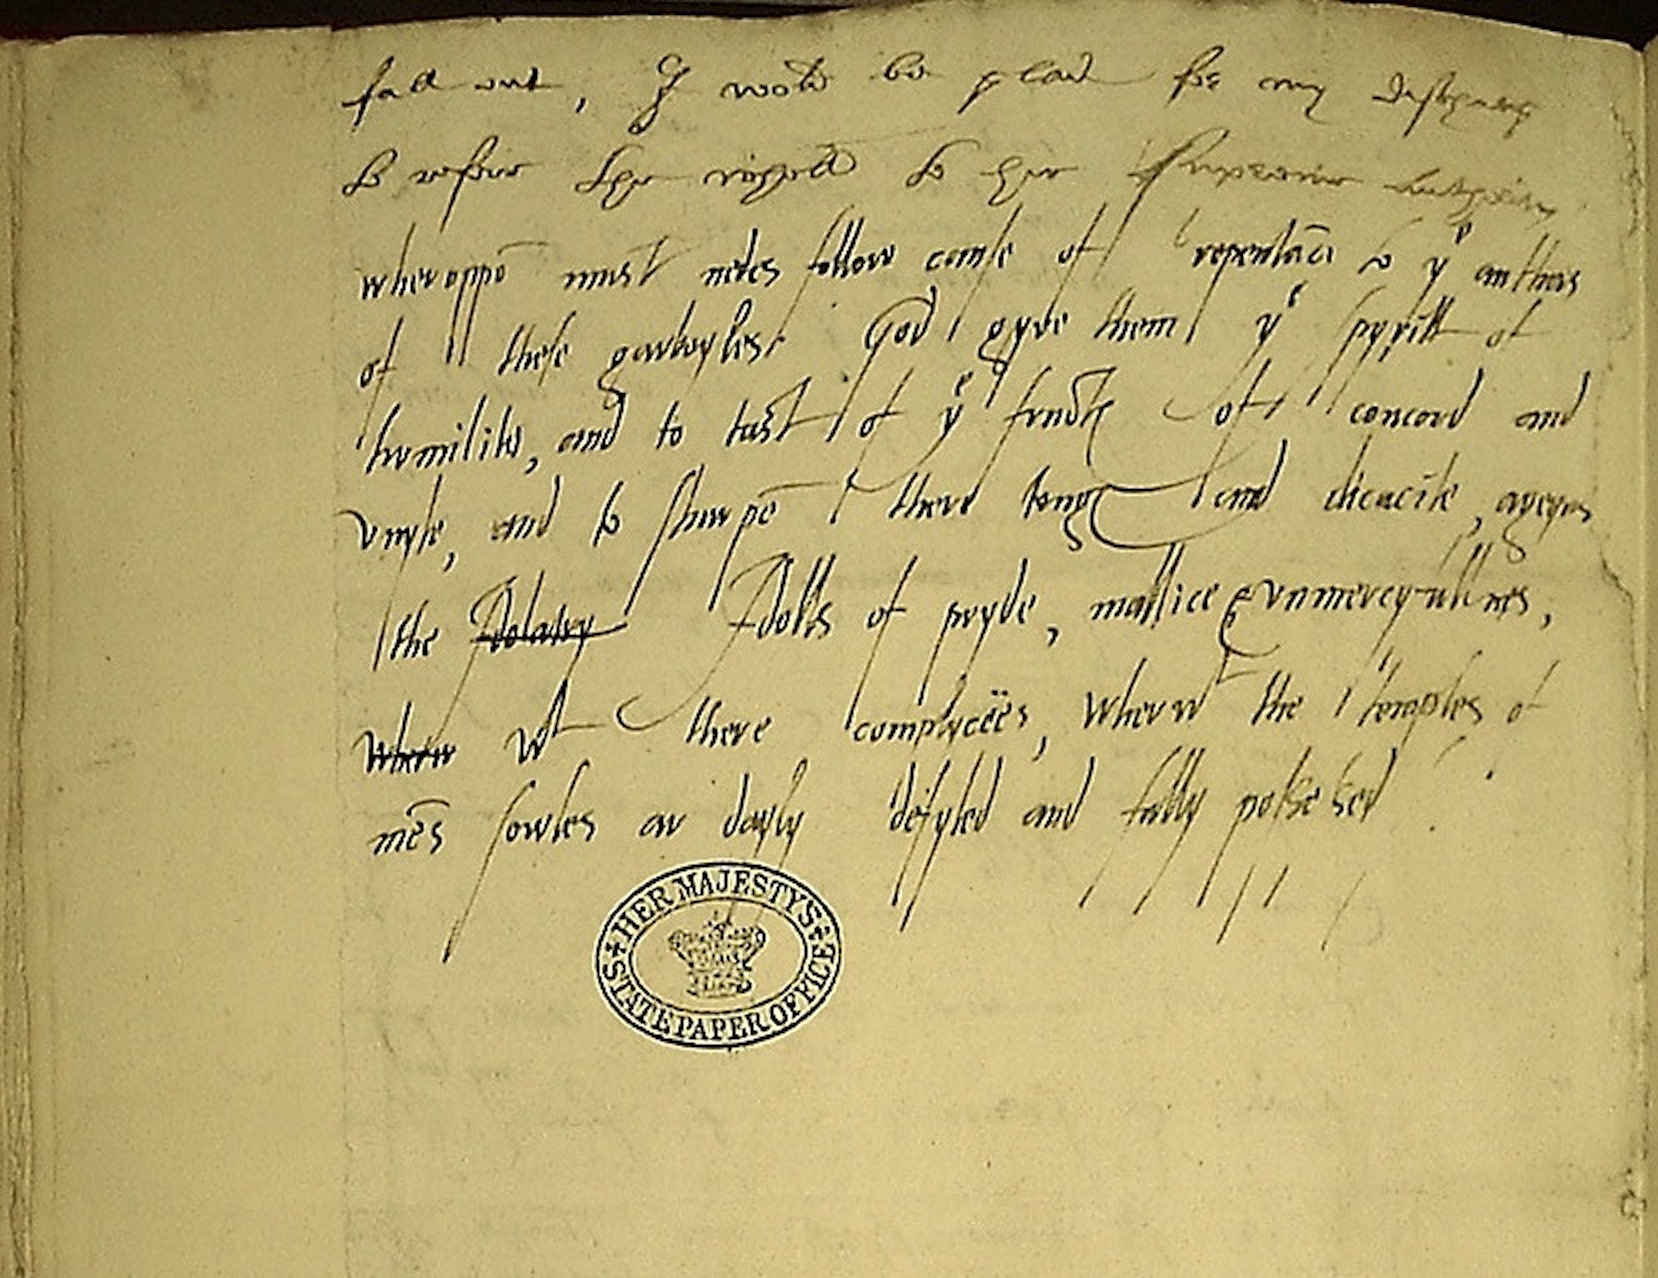 fall out, I wold be glad for my dischardg
to refuse the vigill to her superiour
wheroppō must nedes follow cause of repentācē to yͤ authors
of these garboyles. God gyve them yͤ spyritt of
humilite, and to tast of yͤ of concord and
unyte, and to sharpē there tong and dicacite, ageyns
the Idolatry Idolls of pryde, mallice & unmercyfullnes,
wherw wᵗ there complycēēs, wherwᵗ the temples of
mēs sowles ar dayly defyled and fully possessed.
HER MAJESTY'S STATE PAPER OFFICE